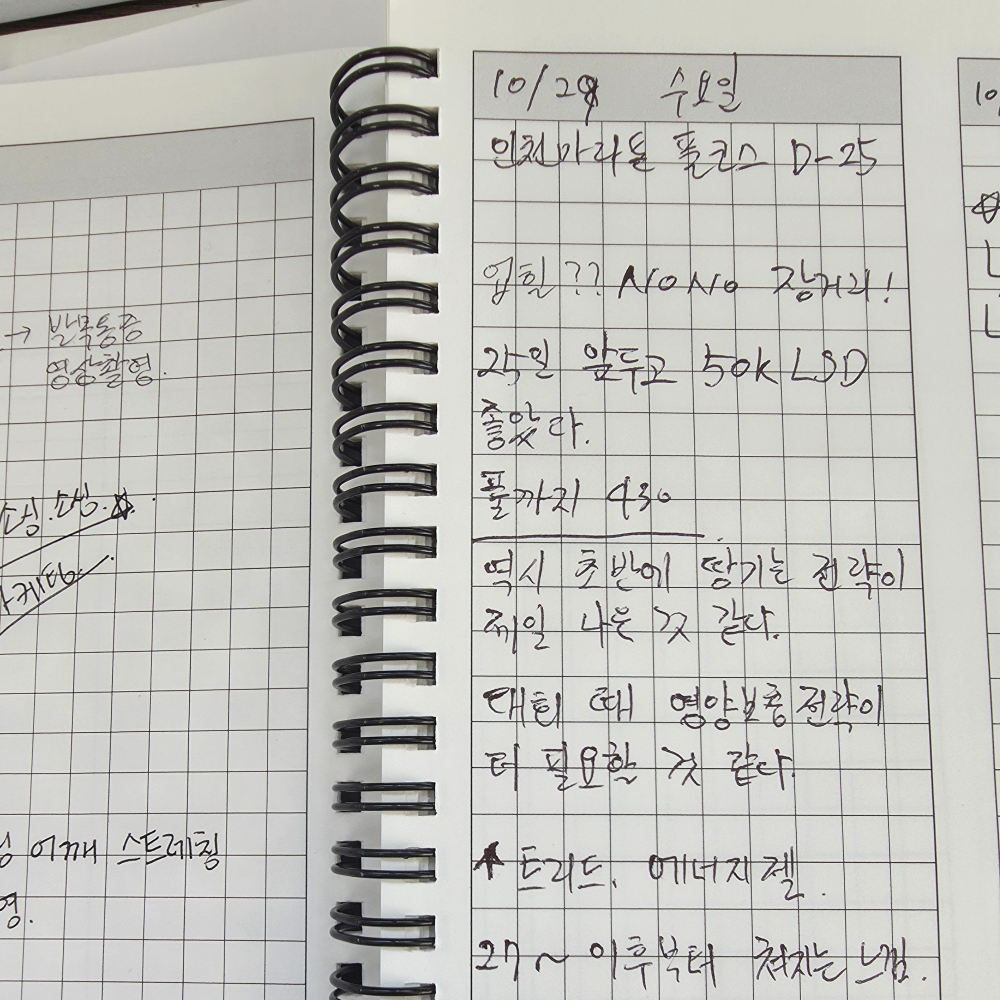 → 발목통증
영상촬영.
소싱. 소싱. ☆.
마케팅.
어깨 스트레칭
영.
10/29 수요일
인천마라톤 풀코스 D-25
업힐?? NONO 장거리!
25일 앞두고 50K LSD
좋았다.
풀까지 430
역시 초반에 땅기는 전략이
제일 나은 것 같다.
대회 때 영양보충전략이
더 필요할 것 같다.
★ 트리드. 에너지젤.
27~ 이후부터 쳐지는 느낌.
10
☆
L
L